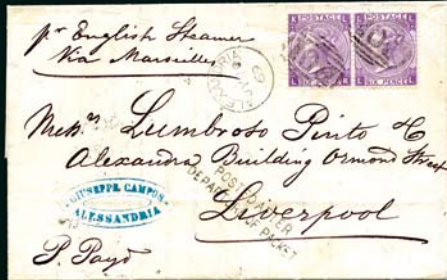 pr English Steamer
Via Marseilles
ALEXANDRIA
69
POSTAGE
SIX PENCE
POSTAGE
SIX PENCE
Messrs Lumbroso Pinto & C
Alexandra Building Ormond Street
GIUSEPPE CAMPOS
ALESSANDRIA
POSTED AFTER
DEPARTURE OF PACKET
Liverpool
P. Payd